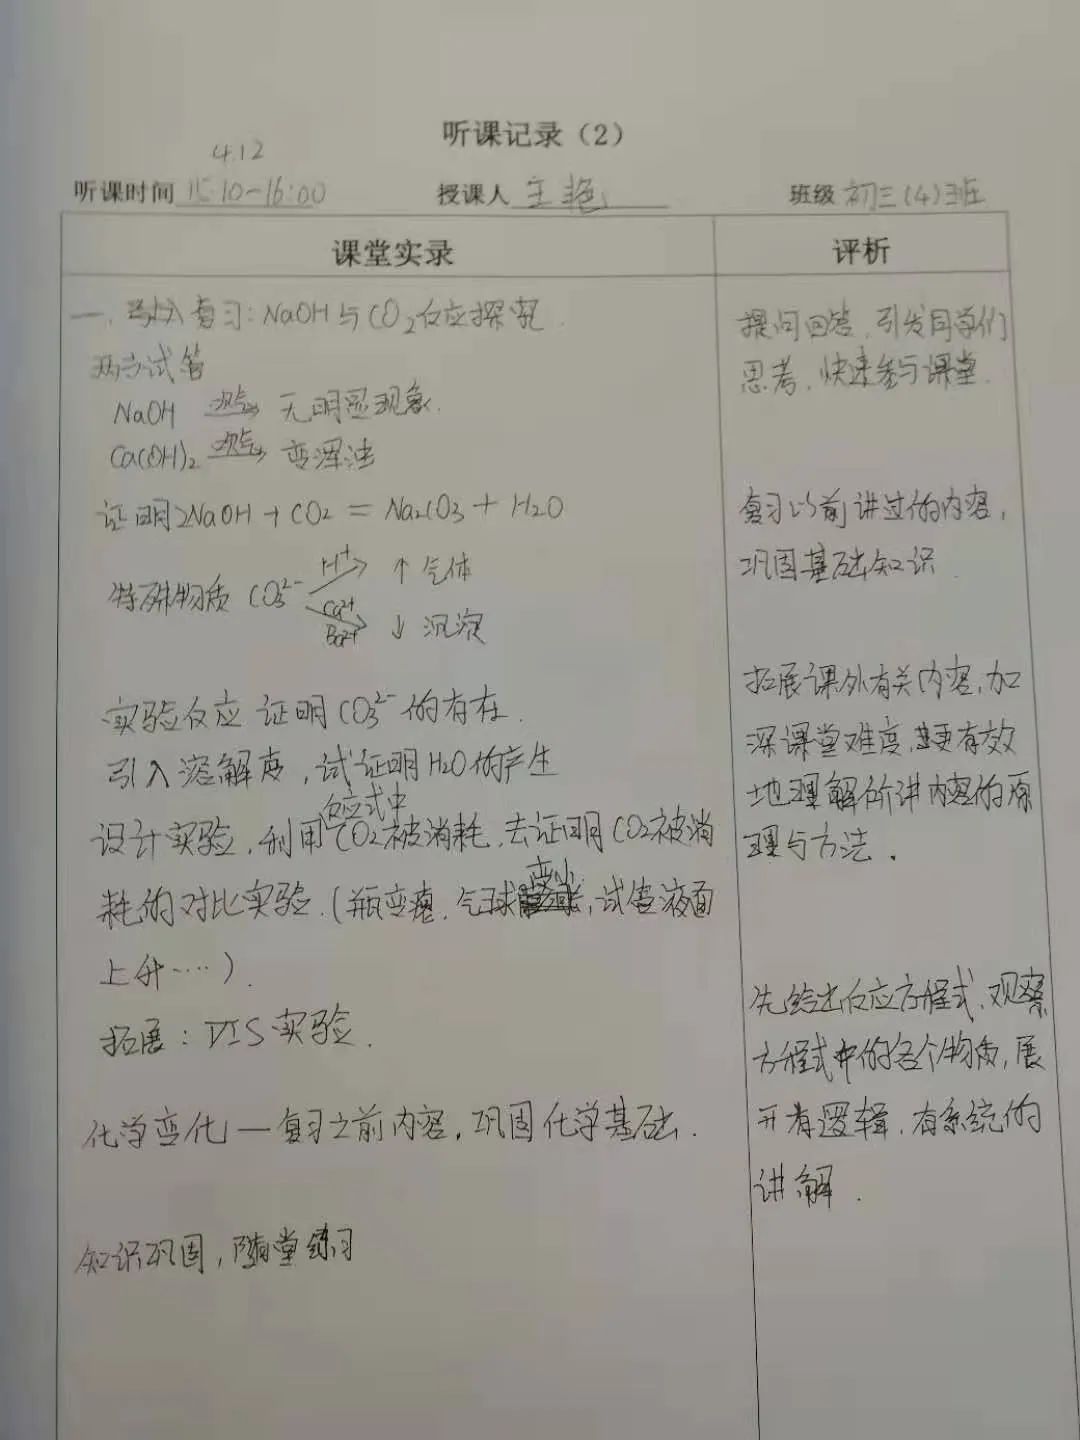 听课记录（2）
4.12
听课时间 15:10-16:00 授课人 王艳 班级 初三(4)班
课堂实录 评析
一、导入复习：NaOH与CO₂反应探究.
两支试管
NaOH 吹气→ 无明显现象.
Ca(OH)₂ 吹气→ 变浑浊
证明2NaOH + CO₂ = Na₂CO₃ + H₂O
特殊物质 CO₃²⁻ H⁺→ ↑ 气体
Ca²⁺ Ba²⁺→ ↓ 沉淀
实验反应 证明CO₃²⁻的存在.
引入溶解度，试证明H₂O的产生
反应式中
设计实验，利用CO₂被消耗，去证明CO₂被消
变小
耗的对比实验.(瓶变瘪，气球，试管液面
上升……).
拓展：DIS实验.
化学变化—复习之前内容，巩固化学基础.
知识巩固，随堂练习
提问回答，引发同学们
思考，快速参与课堂.
复习以前讲过的内容，
巩固基础知识.
拓展课外有关内容，加
深课堂难度，更有效
地理解所讲内容的原
理与方法.
先给出反应方程式，观察
方程式中的各个物质，展
开有逻辑，有系统的
讲解.